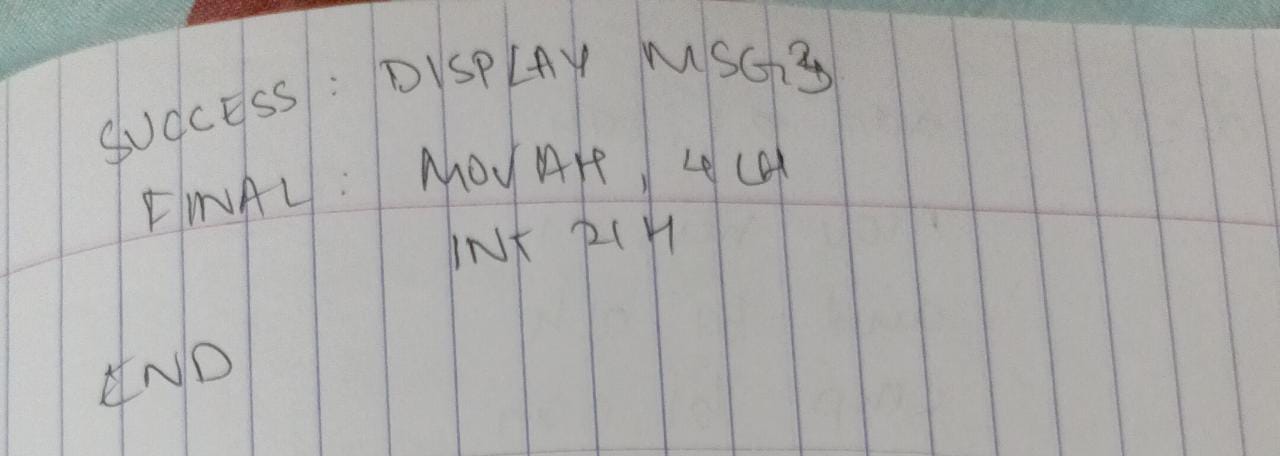 SUCCESS : DISPLAY MSG3
FINAL : MOV AH, 4CH
INT 21H
END